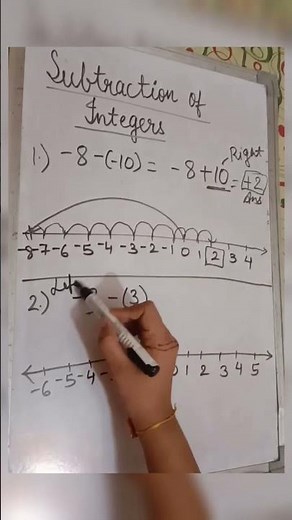 Subtraction of
Integers
1.) -8-(-10) = -8+10 = +2
Right
Ans
-8 -7 -6 -5 -4 -3 -2 -1 0 1 2 3 4
2.) -(3)
-6 -5 -4 0 1 2 3 4 5